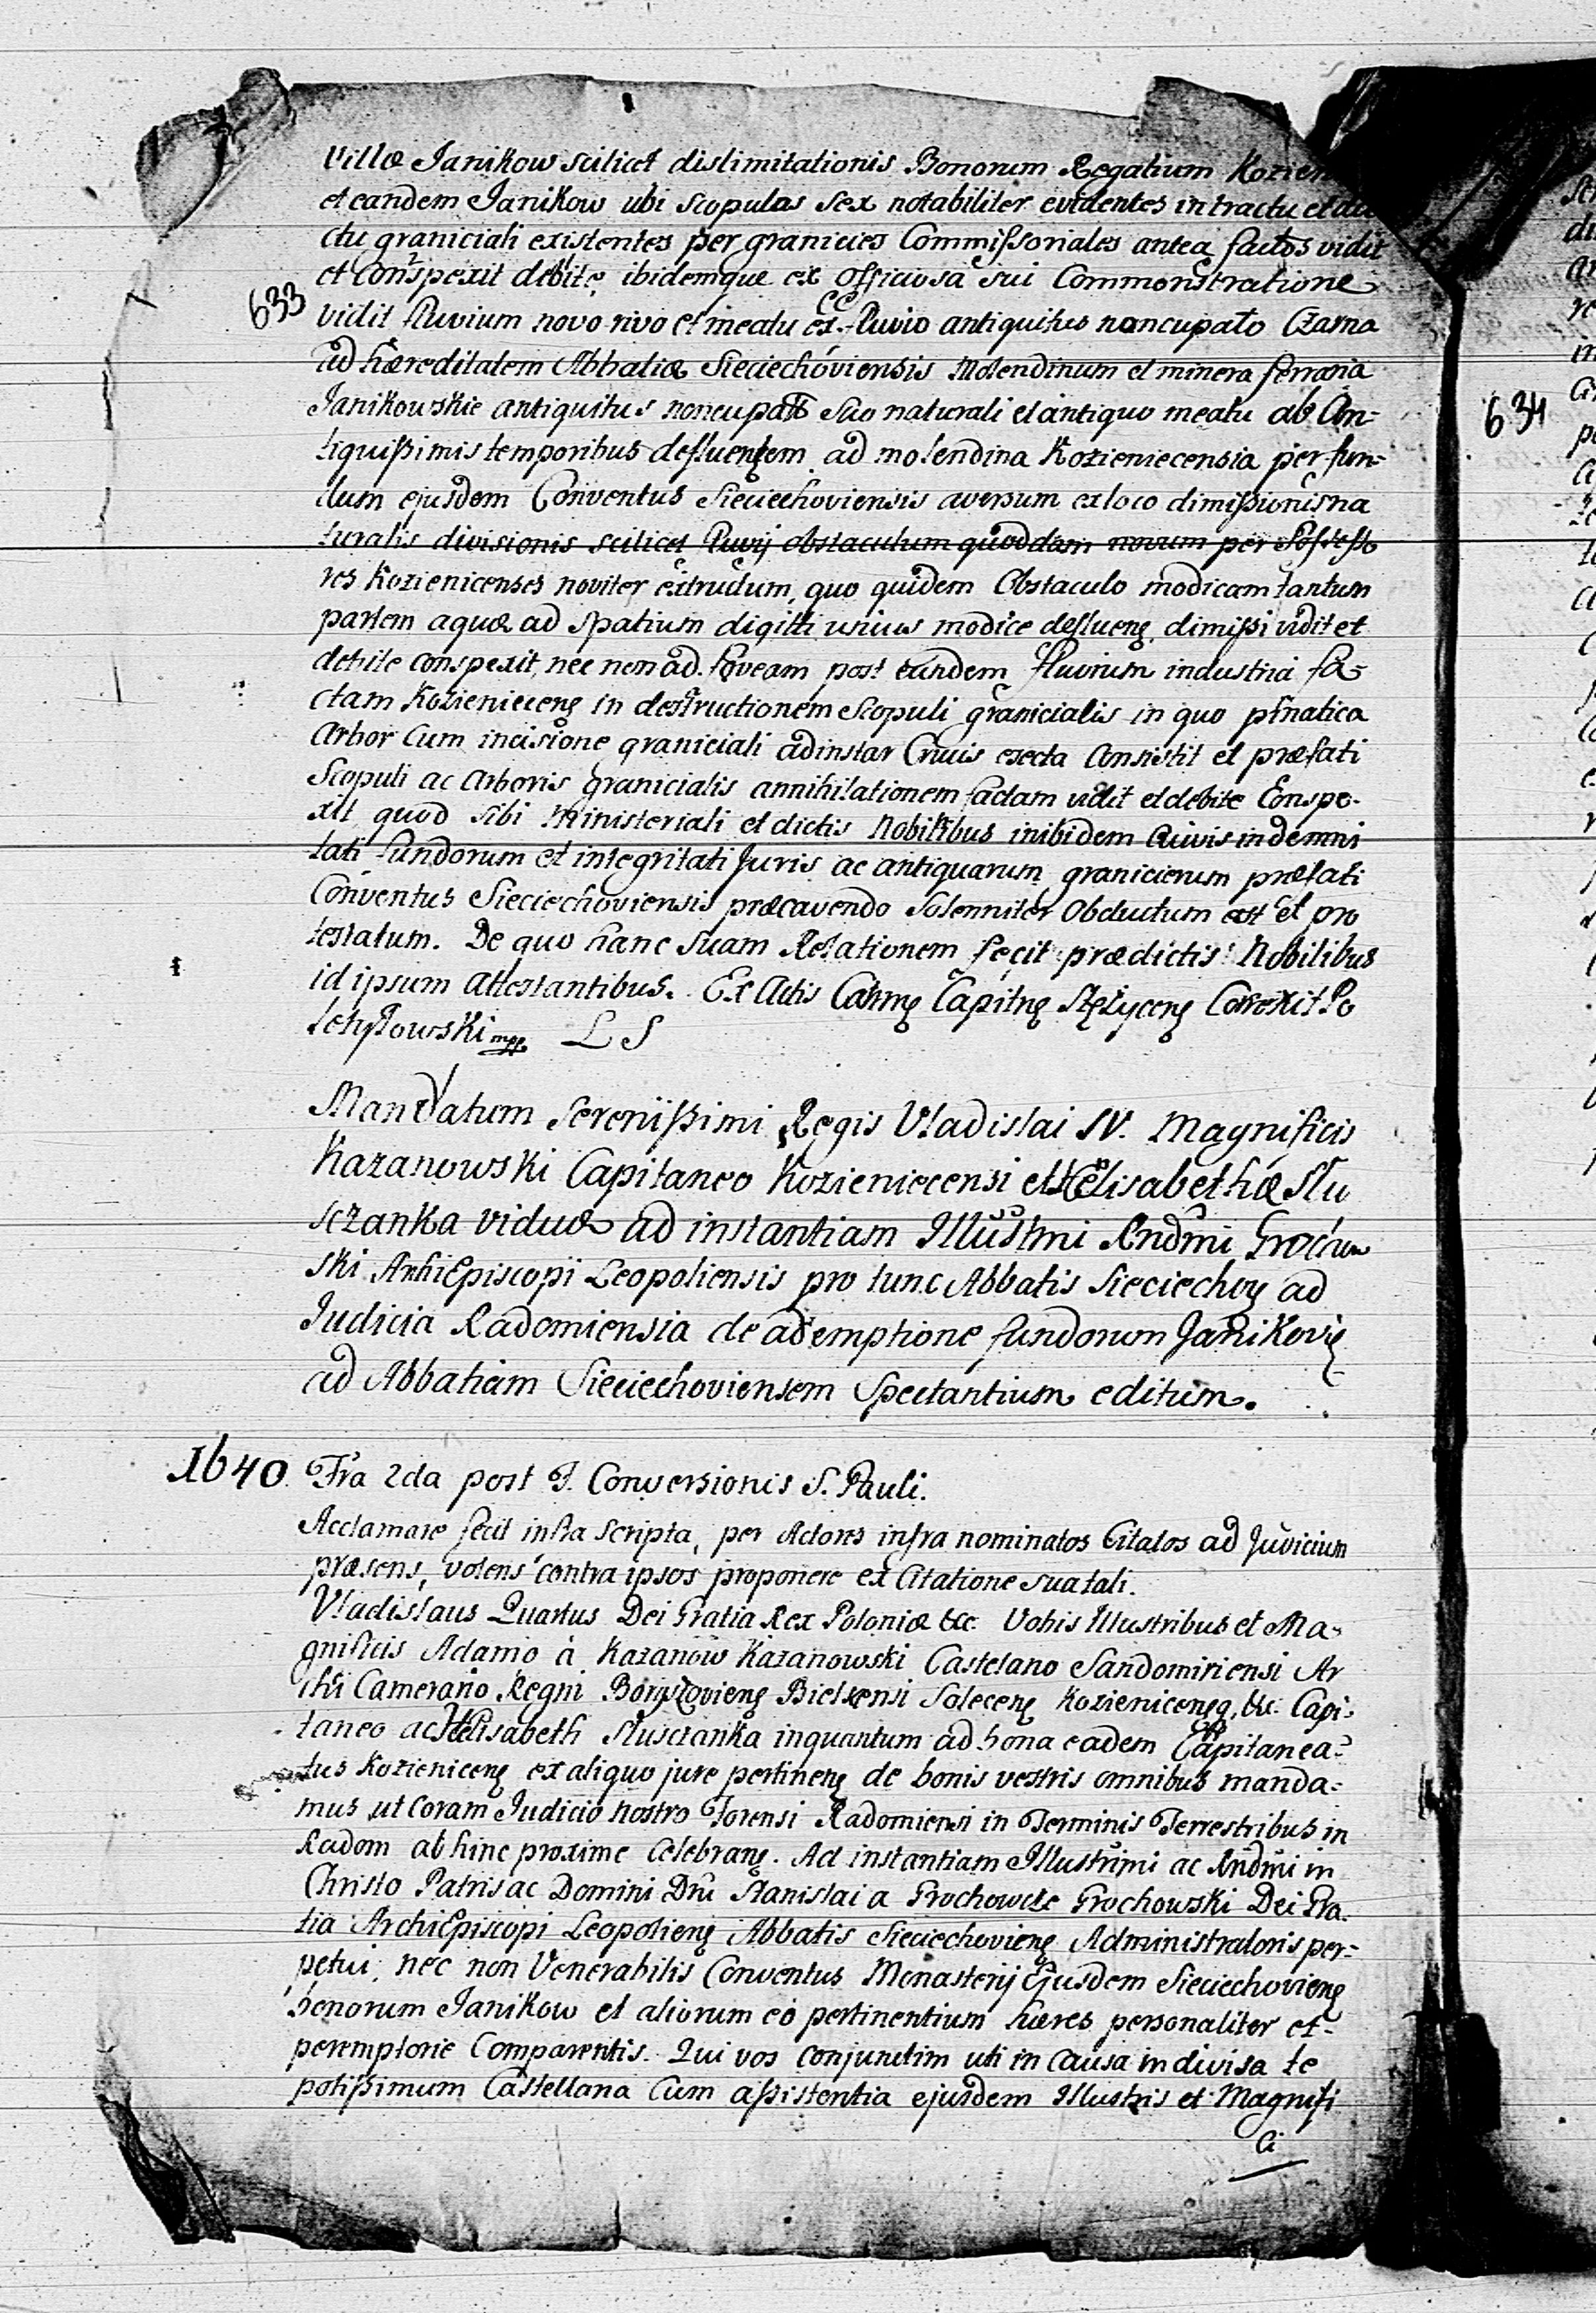 Villæ Janikow scilicet dislimitationis Bonorum Regalium Kozien
et eandem Janikow ubi scopulos sex notabiliter evidentes in tractu et du
ctu graniciali existentes per granicies Commissoriales antea factos vidit
et conspexit debite, ibidemque ex officiosa sui Commonstratione
633 vidit fluvium novo rivo et meatu ex fluvio antiquitus noncupato Czarna
ad hæreditatem Abbatiæ Sieciechoviensis Molendinum et minera ferraria
Janikowskie antiquitus noncupat suo naturali et antiquo meatu ab An=
tiquissimis temporibus defluentem ad molendina Kozieniecensia per fun=
dum ejusdem Conventus Sieciechoviensis aversum ex loco dimissionis na
turalis divisionis scilicet fluvij obstaculum quoddam novum per Possesso
res Kozienicenses noviter extructum, quo quidem Obstaculo modicam tantum
partem aquæ ad spatium digitti unius modice defluens dimissi vidit et
debite conspexit, nec non ad foveam post eundem fluvium industria fa=
ctam Kozieniecens in destructionem Scopuli granicialis in quo pñatica
Arbor cum incisione graniciali adinstar Crucis execta Consistit et præfati
Scopuli ac Arboris granicialis annihilationem factam vidit et debite Conspe=
xit quod sibi Ministeriali et dictis Nobilibus inibidem cuivis indemni
tati fundorum et integritati Juris ac antiquarum granicierum præfati
Conventus Sieciechoviensis præcavendo Solenniter Obductum est et pro
testatum. De quo hanc suam Relationem fecit prædictis Nobilibus
id ipsum attestantibus. Ex Actis Castrens Capitns Stężycens Correxit Po
letyłowski mpp LS
Mandatum Serenissimi Regis Vladislai IV. Magnificis
Kazanowski Capitaneo Kozieniecensi et Elisabethæ Słu
sczanka viduæ ad instantiam Illustmi Rndmi Grochow
ski ArchiEpiscopi Leopoliensis pro tunc Abbatis Sieciechov ad
Judicia Radomiensia de ademptione fundorum Janikovie
ad Abbatiam Sieciechoviensem Spectantium editum.
1640. Fra 2da post F. Conversionis S. Pauli.
Acclamare fecit infra scripta, per Actores infra nominatos Citatos ad Judicium
præsens, volens contra ipsos proponere ex Citatione sua tali.
Vladislaus Quartus Dei Gratia Rex Poloniæ &c. Vobis Illustribus et Ma=
gnificis Adamo à Kazanow Kazanowski Castelano Sandomiriensi Ar
chi Camerario Regni Borysoviens Bielscensi Solecens Kozienicensq, &c. Capi=
taneo ac Elisabeth Słusczanka inquantum ad bona eadem Capitanea=
tus Kozienicens ex aliquo jure pertinens de bonis vestris omnibus manda=
mus ut Coram Judicio nostro Forensi Radomiensi in Terminis Terrestribus in
Radom abhinc proxime Celebrans. Ad instantiam Illustrmi ac Rndmi in
Christo Patris ac Domini Dni Stanislai a Grochowce Grochowski Dei Gra=
tia ArchiEpiscopi Leopoliens Abbatis Sieciechoviens Administratoris per=
petui, nec non Venerabilis Conventus Monasterij Ejusdem Sieciechoviens
bonorum Janikow et aliorum eo pertinentium hæres personaliter et=
peremptorie Comparentis. Qui vos conjunctim uti in causa indivisa te
potissimum Castellana cum assistentia ejusdem Illustris et Magnifi
ci
634